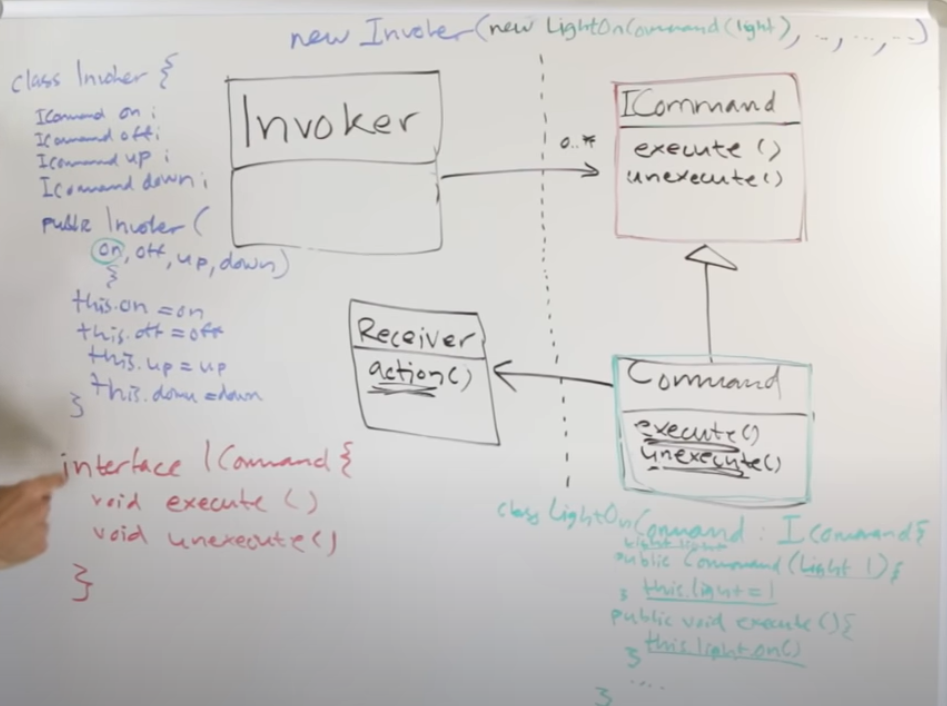 new Invoker(new LightOnCommand(light), .., .., ..)
class Invoker {
ICommand on;
ICommand off;
ICommand up;
ICommand down;
public Invoker(
on, off, up, down)
{
this.on = on
this.off = off
this.up = up
this.down = down
}
interface ICommand {
void execute ()
void unexecute()
}
Invoker
0..*
ICommand
execute ()
unexecute()
Receiver
action()
Command
execute()
unexecute()
class LightOnCommand : ICommand {
Light light
public Command(Light l) {
} this.light = l
public void execute () {
this.light.on()
}
....
}